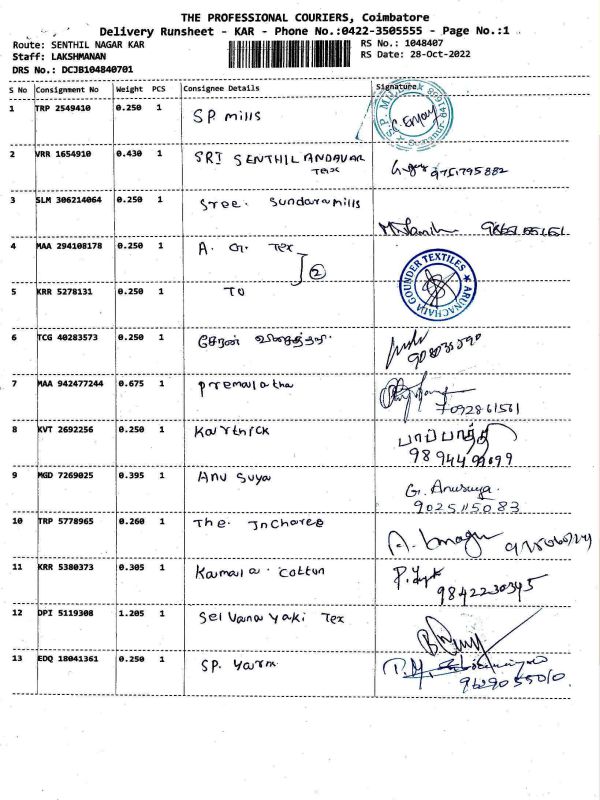 THE PROFESSIONAL COURIERS, Coimbatore
Delivery Runsheet - KAR - Phone No.:0422-3505555 - Page No.:1
Route: SENTHIL NAGAR KAR
RS No.: 1048407
Staff: LAKSHMANAN
RS Date: 28-Oct-2022
DRS No.: DCJB104840701
S No Consignment No Weight PCS Consignee Details Signature
1 TRP 2549410 0.250 1 SP mills
2 VRR 1654910 0.430 1 SRI SENTHIL ANDAVAR
Tex
9751795882
3 SLM 306214064 0.250 1 Sree. Sundara mills
4 MAA 294108178 0.250 1 A. G. Tex
2
ARUNACHALA GOUNDER TEXTILES
5 KRR 5278131 0.250 1 TO
6 TCG 40283573 0.250 1 சேரன்
7 MAA 942477244 0.675 1 premalatha
7092861561
8 KVT 2692256 0.250 1 Karthick
பாப்பாத்தி
9 MGD 7269025 0.395 1 Anu Suya G. Anusuya
9025115083
10 TRP 5778965 0.260 1 The. Incharee
11 KRR 5380373 0.305 1 Kamala. Cotton
9842230345
12 DPI 5119308 1.205 1 Selvanayaki Tex
13 EDQ 18041361 0.250 1 SP. Yarn
9629055010.